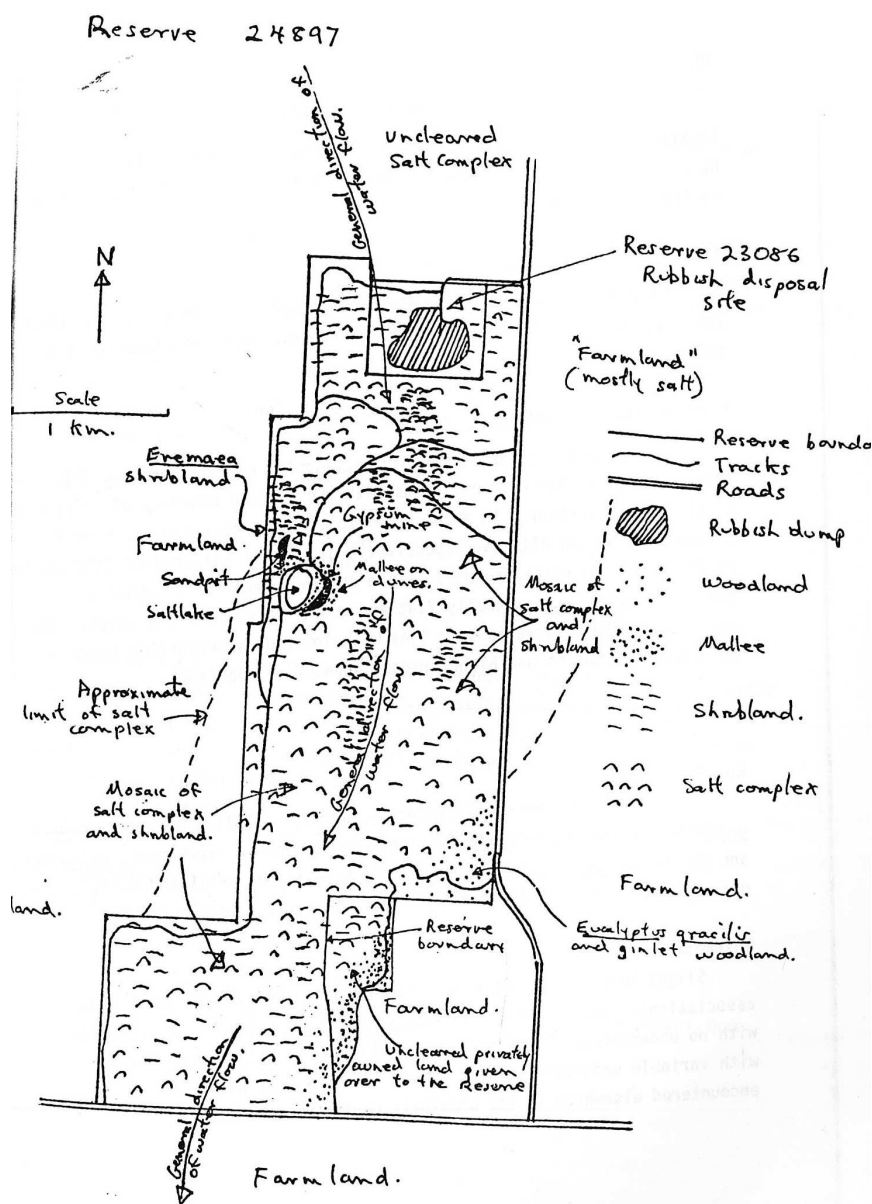 Reserve 24897
General direction of
water flow.
Uncleared
Salt Complex
N
Reserve 23086
Rubbish disposal
site
"Farmland"
(mostly salt)
Scale
1 km.
Reserve bounda
Tracks
Roads
Rubbish dump
Woodland
Mallee
Shrubland.
Salt complex
Eremaea
shrubland
Farmland.
Sandpit
Saltlake
Gypsum
mine
Mallee on
dunes.
Mosaic of
salt complex
and
shrubland
Approximate
limit of salt
complex
General direction of
water flow
Mosaic of
salt complex
and shrubland.
land.
Farmland.
Reserve
boundary
Eucalyptus gracilis
and gimlet woodland.
Farmland.
Uncleared privately
owned land given
over to the Reserve
General direction
of water flow.
Farmland.
association
with no
with variable
encountered